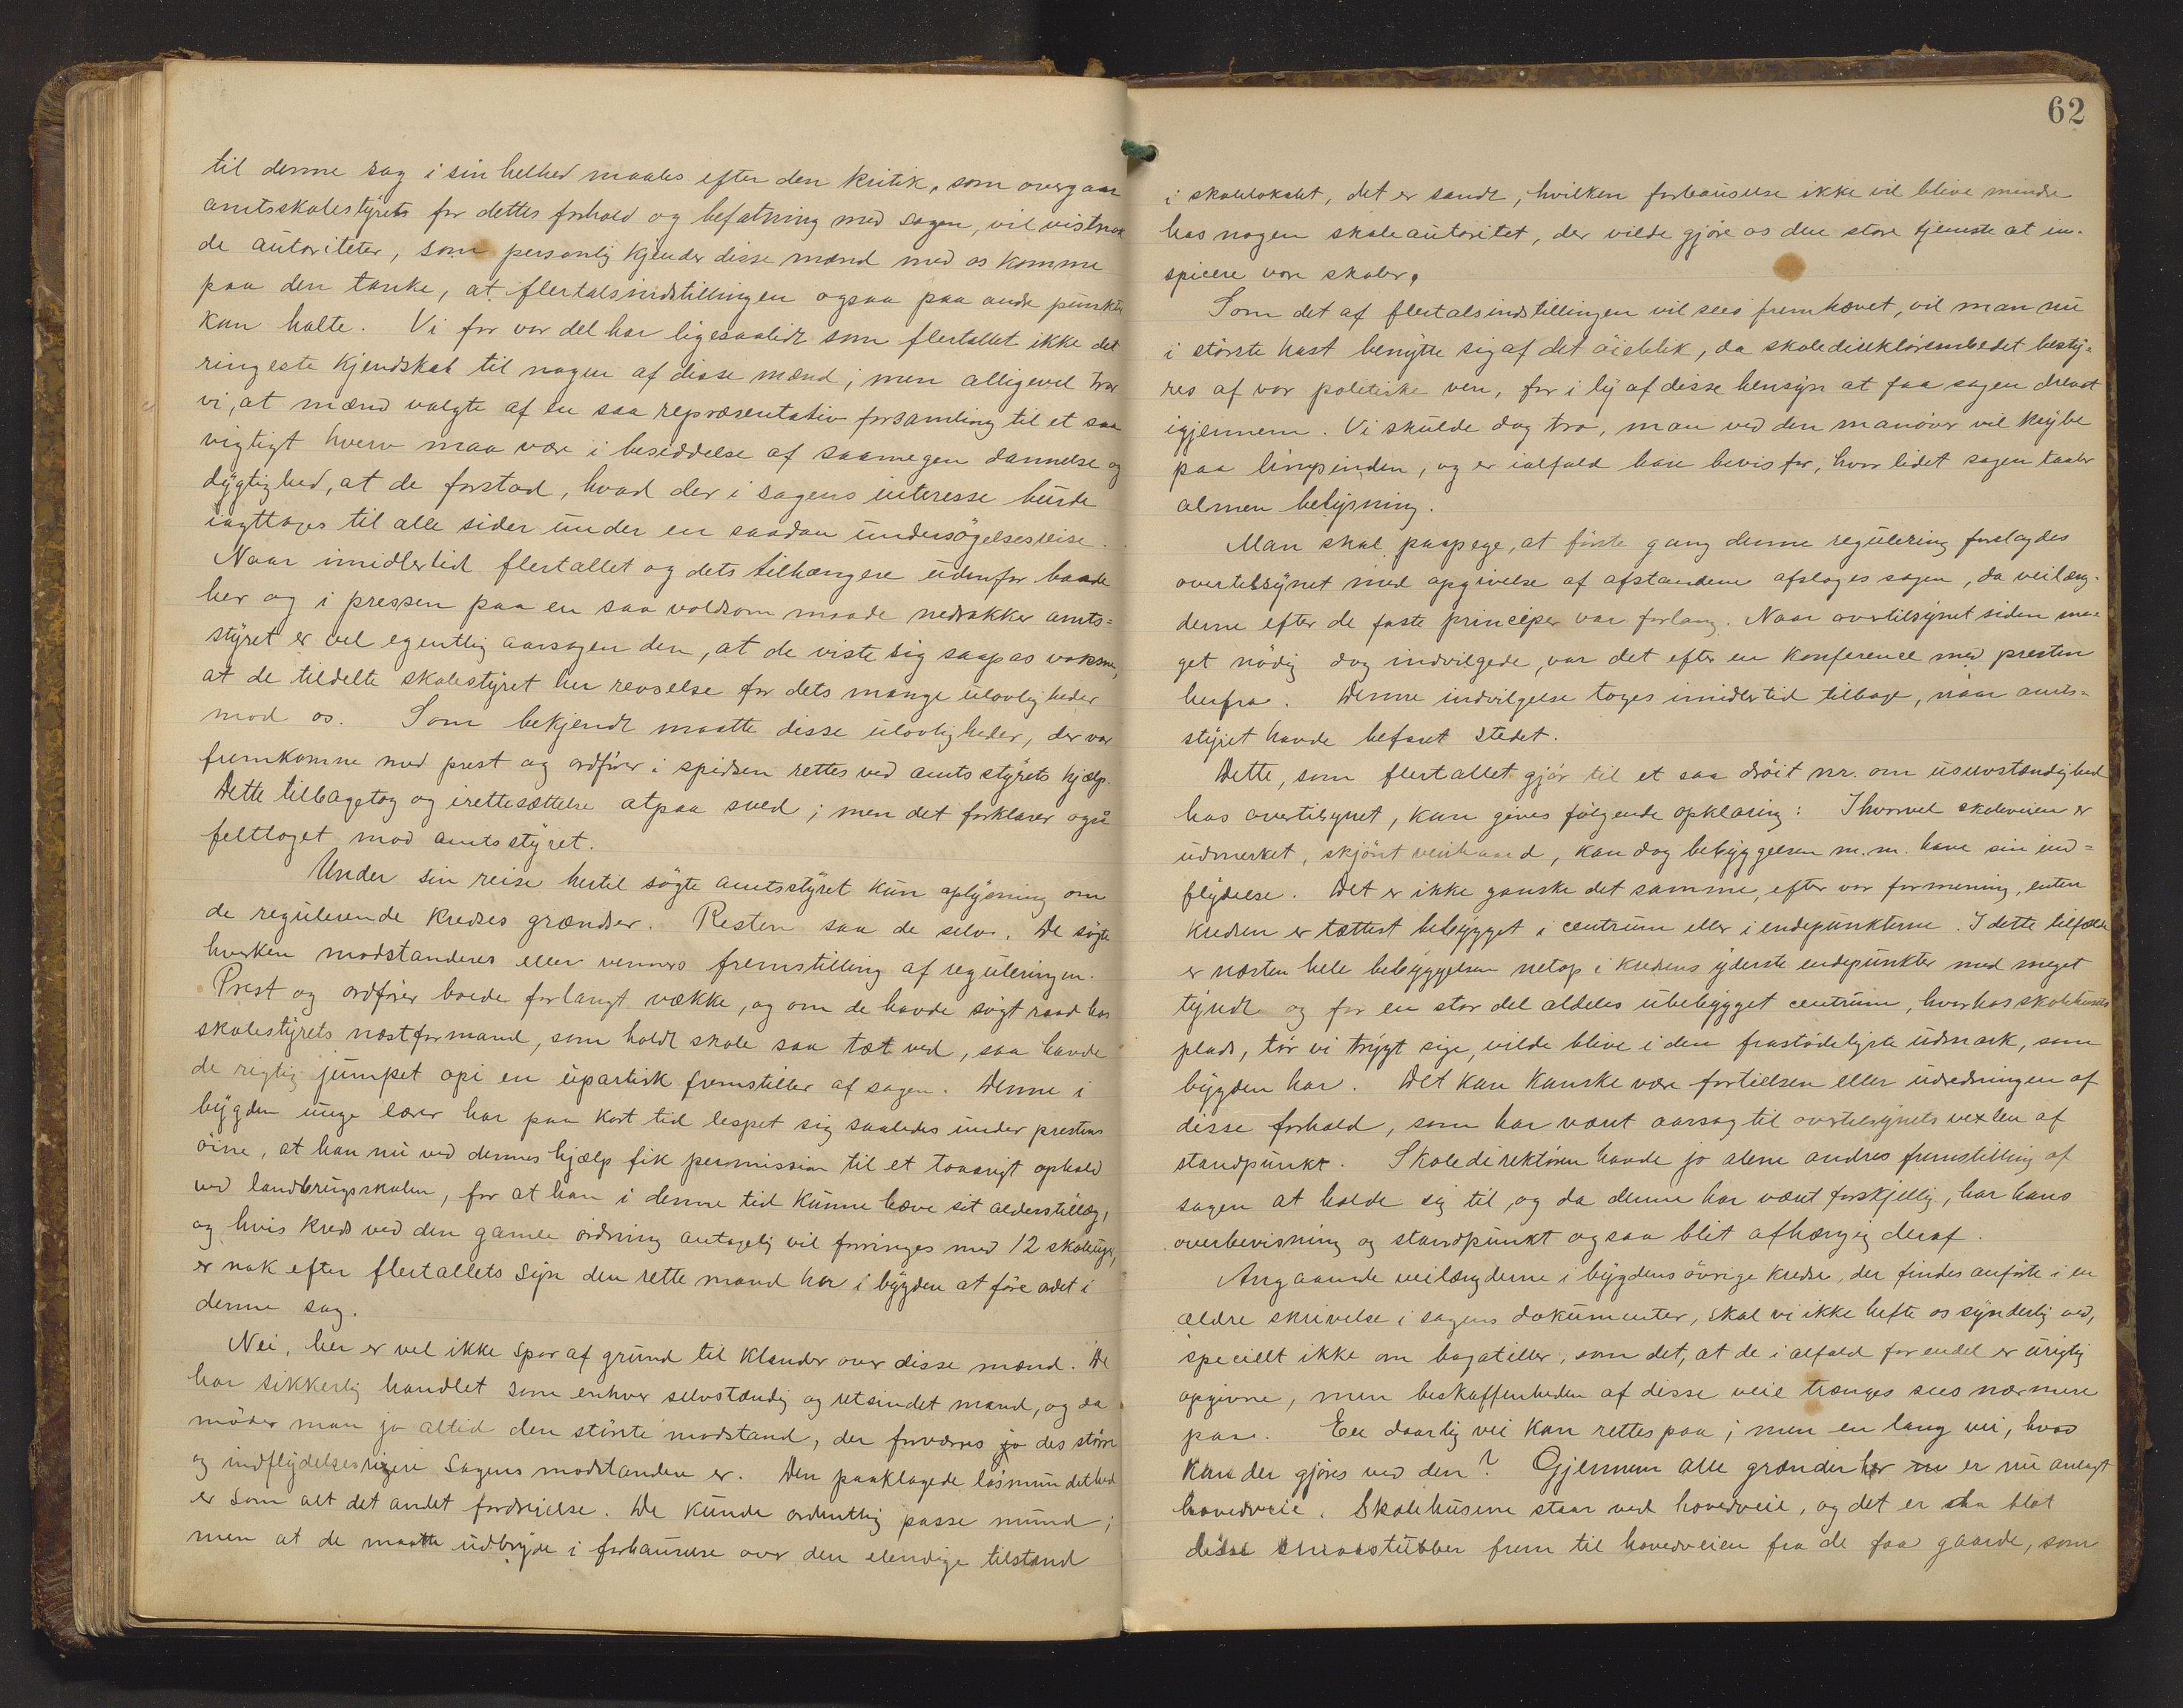 til denne sag i sin helhed maales efter den kritik, som overgaar
amtsskolestyrets for dettes forhold og befatning med sagen, vil vistnok
de autoriteter, som personlig kjender disse mænd med os komme
paa den tanke, at flertalsindstillingen ogsaa paa andre punkter
kan halte. Vi for vor del har ligesaalidt som flertallet ikke det
ringeste kjendskab til nogen af disse mænd; men alligevel tror
vi, at mænd valgte af en saa repræsentativ forsamling til et saa
vigtigt hverv maa være i besiddelse af saamegen dannelse og
dygtighed, at de forstod, hvad der i sagens interesse burde
iagttages til alle sider under en saadan undersögelsesreise.
Naar imidlertid flertallet og dets tilhængere udenfor baade
her og i pressen paa en saa voldsom maade nedrakker amts=
styret er vel egentlig aarsagen den, at de viste sig saapas voksne,
at de tildelte skolestyret her revselse for dets mange ulovligheder
mod os. Som bekjendt maatte disse ulovligheder, der var
fremkomne med prest og ordförer i spidsen rettes ved amtsstyrets hjælp.
Dette tilbagetog og irettesættelse atpaa sved; men det forklarer også
felttoget mod amtsstyret.
Under sin reise hertil sögte amtsstyret kun oplysning om
de regulerende kredses grændser. Resten saa de selv. De sögte
hverken modstanderes eller venners fremstilling af reguleringen.
Prest og ordförer boede forlangt vække, og om de havde sögt raad hos
skolestyrets næstformand, som holdt skole saa tæt ved, saa havde
de rigtig jumpet opi en upartisk fremstiller af sagen. Denne i
bygden unge lærer har paa kort tid lespet sig saaledes under prestens
öine, at han nu ved dennes hjælp fik permission til et toaarigt ophold
ved landbrugsskolen, for at han i denne tid kunne hæve sit alderstillæg,
og hvis kreds ved den gamle ordning antagelig vil forringes med 12 skoleuger,
er nok efter flertallets syn den rette mand her i bygden at före ordet i
denne sag.
Nei, her er vel ikke spor af grund til klander over disse mænd. De
har sikkerlig handlet som enhver selvstændig og retsindet mand, og da
möder man jo altid den störste modstand, der forværres jo des större
og indflydelsesrigere sagens modstandere er. Den paaklagede lösmundethed
er som alt det andet fordreielse. De kunde ordentlig passe mund;
men at de maatte udbryde i forbauselse over den elendige tilstand
62
i skolelokalet, det er sandt, hvilken forbauselse ikke vil blive mindre
hos nogen skoleautoritet, der vilde gjöre os den store tjeneste at in-
spicere vore skoler.
Som det af flertalsindstillingen vil sees fremhævet, vil man nu
i störste hast benytte sig af det öieblik, da skoledirektörembedet besty=
res af vor politiske ven, for i ly af disse hensyn at faa sagen drevet
igjennem. Vi skulde dog tro, man ved den manöver vil krybe
paa limpinden, og er ialfald have bevis for, hvor lidet sagen taaler
almen belysning.
Man skal paapege, at förste gang denne regulering forelagdes
overtilsynet med opgivelse af afstandene afsloges sagen, da veilæng-
derne efter de faste principer var forlang. Naar overtilsynet siden me=
get nödig dog indvilgede, var det efter en konference med presten
herfra. Denne indvilgelse toges imidlertid tilbage, naar amts=
styret havde befaret stedet.
Dette, som flertallet gjör til et saa dröit nr. om uselvstændighed
hos overtilsynet, kan gives fölgende opklaring: Ihvorvel skoleveien er
udmerket, skjönt veirhaard, kan dog bebyggelsen m.m. have sin ind=
flydelse. Det er ikke ganske det samme, efter vor formening, enten
kredsen er tættest bebygget i centrum eller i endepunkterne. I dette tilfælde
er næsten hele bebyggelsen netop i kredsens yderste endepunkter med meget
tyndt og for en stor del aldeles ubebygget centrum, hvorhos skolehusets
plads, tör vi trygt sige, vilde blive i den frastödeligste udmark, som
bygden har. Det kan kanske være fortielsen eller udredningen af
disse forhold, som har været aarsag til overtilsynets vexlen af
standpunkt. Skoledirektören havde jo alene andres fremstilling af
sagen at holde sig til, og da denne har været forskjellig, har hans
overbevisning og standpunkt ogsaa blit afhængig deraf.
Angaaende veilængderne i bygdens övrige kredse, der findes anförte i en
ældre skrivelse i sagens dokumenter, skal vi ikke hefte os synderlig ved,
specielt ikke om bagateller, som det, at de i alfald for endel er urigtig
opgivne, men beskaffenheden af disse veie trænges sees nærmere
paa. En daarlig vei kan rettes paa; men en lang vei, hvad
kan der gjöres ved den? Gjennem alle grænder her er nu anlagt
hovedveie. Skolehusene staar ved hovedveie, og det er da blot
disse smaastubber frem til hovedveien fra de faa gaarde, som